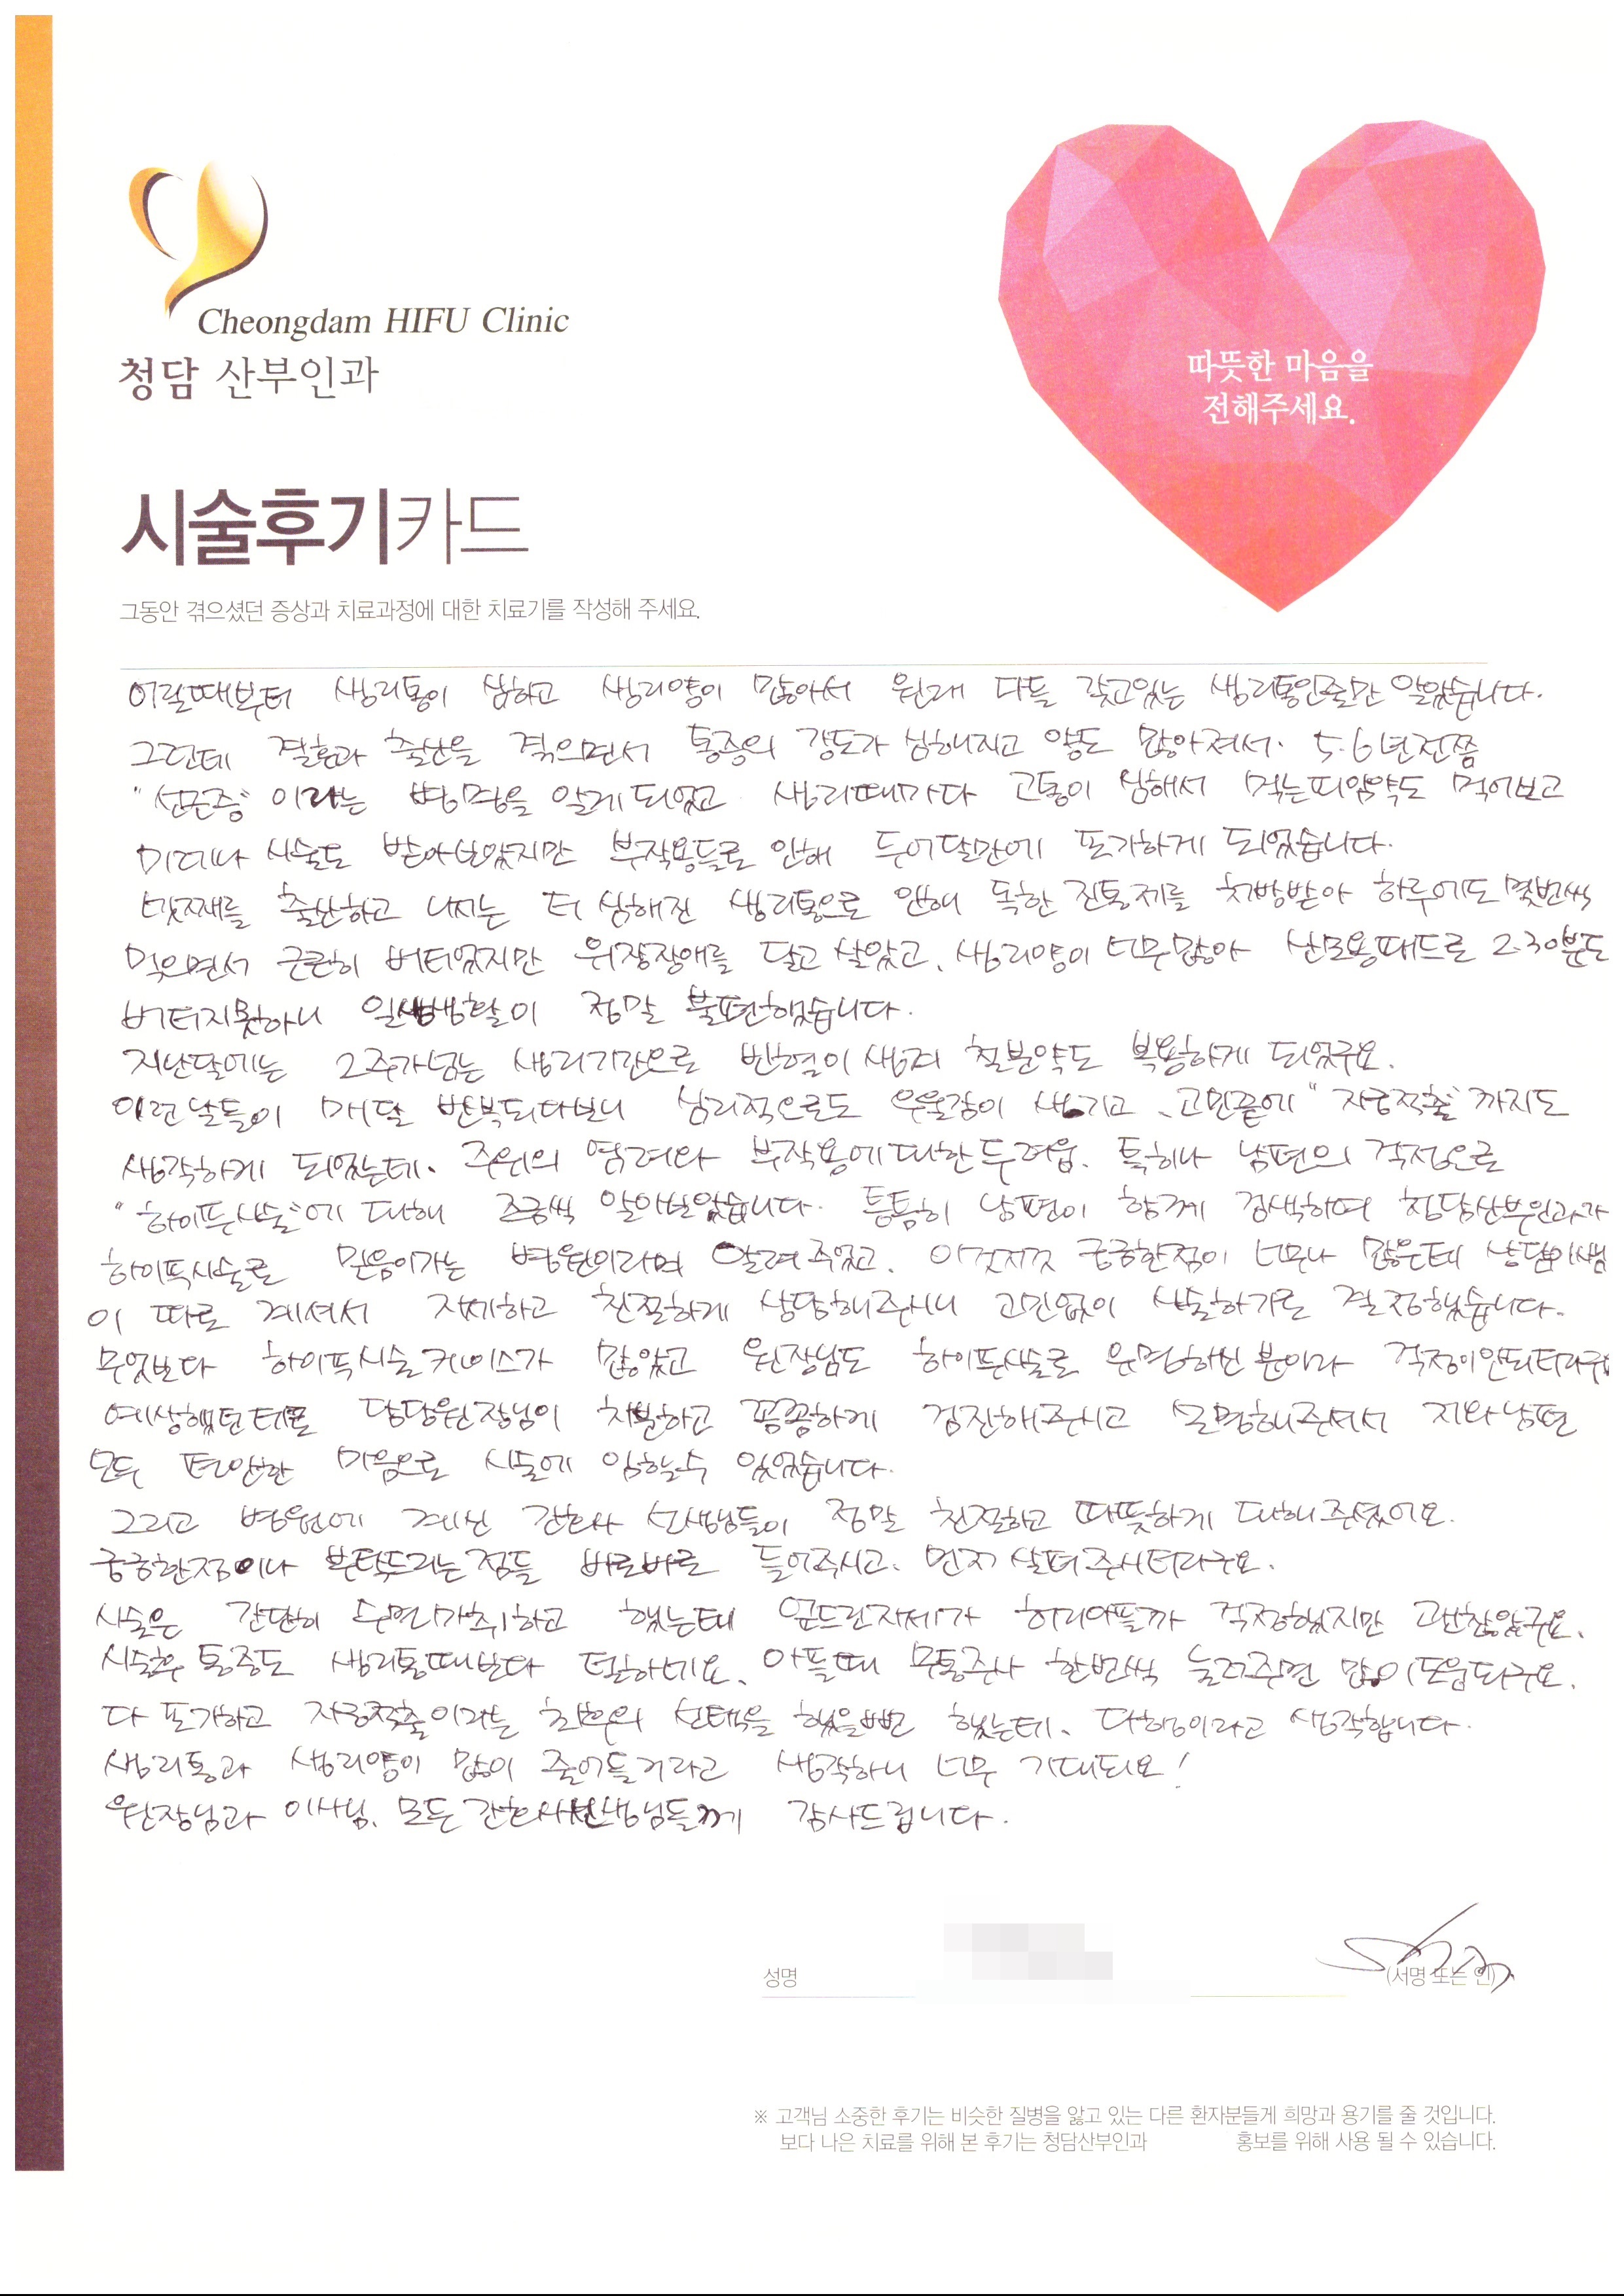 Cheongdam HIFU Clinic
청담 산부인과
따뜻한 마음을
전해주세요.
시술후기카드
그동안 겪으셨던 증상과 치료과정에 대한 치료기를 작성해 주세요.
어릴때부터 생리통이 심하고 생리양이 많아서 원래 다들 갖고있는 생리통인줄만 알았습니다.
그런데 결혼과 출산을 겪으면서 통증의 강도가 심해지고 양도 많아져서. 5.6년전쯤
"선근증" 이라는 병명을 알게 되었고 생리때마다 고통이 심해서 먹는피임약도 먹어보고
미레나 시술도 받아보았지만 부작용들로 인해 두어달만에 포기하게 되었습니다.
출산하고 나서는 더 심해진 생리통으로 인해 독한 진통제를 처방받아 하루에도 몇번씩
먹으면서 근근히 버티었지만 위장장애를 달고 살았고, 생리양이 너무많아 산모용패드로 2.30분도
버티지못하니 일상생활이 정말 불편했습니다.
지난달에는 2주가넘는 생리기간으로 빈혈이 생겨 철분약도 복용하게 되었구요.
이런 날들이 매달 반복되다보니 심리적으로도 우울감이 생기고, 고민끝에 "자궁적출" 까지도
생각하게 되었는데, 주위의 염려와 부작용에대한 두려움, 특히나 남편의 걱정으로
"하이푸시술"에 대해 조금씩 알아보았습니다. 틈틈히 남편이 함께 검색하며 청담산부인과가
하이푸시술로 믿음이가는 병원이라며 알려주었고, 이것저것 궁금한점이 너무나 많은데 상담이사님
이 따로 계셔서 자세하고 친절하게 상담해주시니 고민없이 시술하기로 결정했습니다.
무엇보다 하이푸시술 케이스가 많았고 원장님도 하이푸시술로 유명하신 분이라 걱정이안되더라구요
예상했던대로 담당원장님이 차분하고 꼼꼼하게 검진해주시고 설명해주셔서 저와남편
모두 편안한 마음으로 시술에 임할수 있었습니다.
그리고 병원에 계신 간호사 선생님들이 정말 친절하고 따뜻하게 대해주셨어요.
궁금한점이나 부탁드리는점들 바로바로 들어주시고, 먼저 살펴주시더라구요.
시술은 간단히 수면마취하고 했는데 엎드린자세가 허리아플까 걱정했지만 괜찮았구요.
시술후 통증도 생리통때보다 덜하네요. 아플때 무통주사 한번씩 눌러주면 많이도움되구요.
다 포기하고 자궁적출이라는 최후의 선택을 했을뻔 했는데, 다행이라고 생각합니다.
생리통과 생리양이 많이 줄어들거라고 생각하니 너무 기대되요!
원장님과 이사님, 모든 간호사선생님들께 감사드립니다.
성명
(서명 또는 인)
※ 고객님 소중한 후기는 비슷한 질병을 앓고 있는 다른 환자분들게 희망과 용기를 줄 것입니다.
보다 나은 치료를 위해 본 후기는 청담산부인과 홍보를 위해 사용 될 수 있습니다.